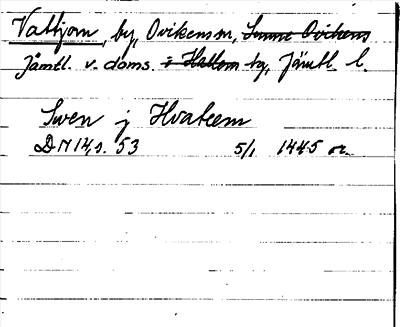 Vathjom, by, Ovikens sn, Sunne Ovikens
Jämtl. v. doms. i Hallom tg, Jämtl. l.
Swen j Hvateem
D N 14, s. 53 5/1 1445 or.